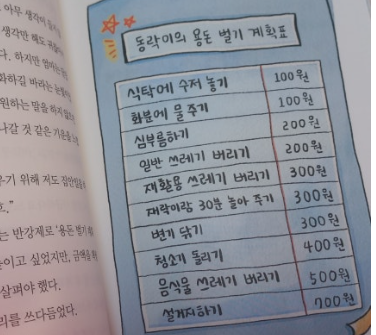 아무 생각이
생각만 해도
다. 하지만 엄마는
화하길 바라는
원하는 말을 하지
나갈 것 같은 기운을
위해 저도 집안일을
는 반강제로 '용돈 벌기
이고 싶었지만, 금액을
살펴야 했다.
리를 쓰다듬었다.
동락이의 용돈 벌기 계획표
식탁에 수저 놓기 100원
화분에 물 주기 100원
심부름하기 200원
일반 쓰레기 버리기 200원
재활용 쓰레기 버리기 300원
재락이랑 30분 놀아 주기 300원
변기 닦기 300원
청소기 돌리기 400원
음식물 쓰레기 버리기 500원
설거지하기 700원